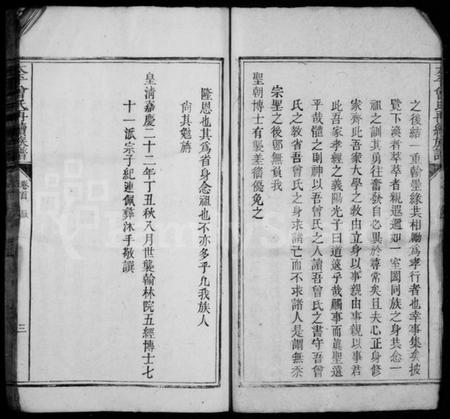 之後結一重翰墨緣共相勵為孝行者也幸事集矣披
覽下渙者萃萃者親遐邇如一室闔同族之身共念一
祖之訓其勇往奮發自必異於尋常矣且夫心正身修
家齊此吾家大學之教由立身以事親由事親以事君
此吾家孝經之義陽光子曰道遠乎哉觸事而真聖遠
乎哉體之則神以吾曾氏之人讀吾曾氏之書守吾曾
氏之教省吾曾氏之身求諸己而不求諸人是謂無忝
宗聖之後卽無負我
聖朝博士有襲差徭優免之
隆恩也其為省身念祖也不亦多乎凡我族人
尚其勉旃
皇清嘉慶二十二年丁丑秋八月世襲翰林院五經博士七
十一派宗子紀連佩彝沐手敬譔
曾氏再續族譜
卷首
三